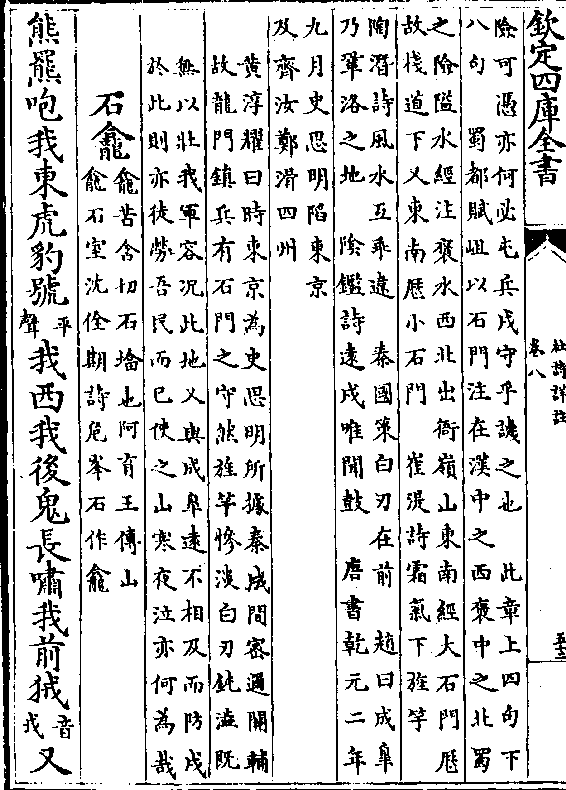 欽定四庫全書
杜詩詳註
卷八
險可憑亦何必屯兵戍守乎譏之也 此章上四句下
八句 蜀都賦岨以石門注在漢中之西褒中之北蜀
之險隘水經注褒水西北出衙嶺山東南經大石門歷
故棧道下又東南歷小石門 崔湜詩霜氣下旌竿
陶潛詩風水互乖違 秦國策白刃在前 趙曰成臯
乃鞏洛之地 陰鏗詩遠戍唯聞鼓 唐書乾元二年
九月史思明陷東京
及齊汝鄭滑四州
黄淳耀曰時東京為史思明所據秦成間密邇關輔
故龍門鎮兵有石門之守然旌竿慘淡白刃鈍澁既
無以壯我軍容況此地又與成臯遠不相及而防戍
於此則亦徒勞吾民而已使之山寒夜泣亦何為哉
石龕 龕苦含切石墖也阿育王傳山
龕石室沈佺期詩危峯石作龕
熊羆咆我東虎豹號平聲我西我後鬼長嘯我前狨音戎又